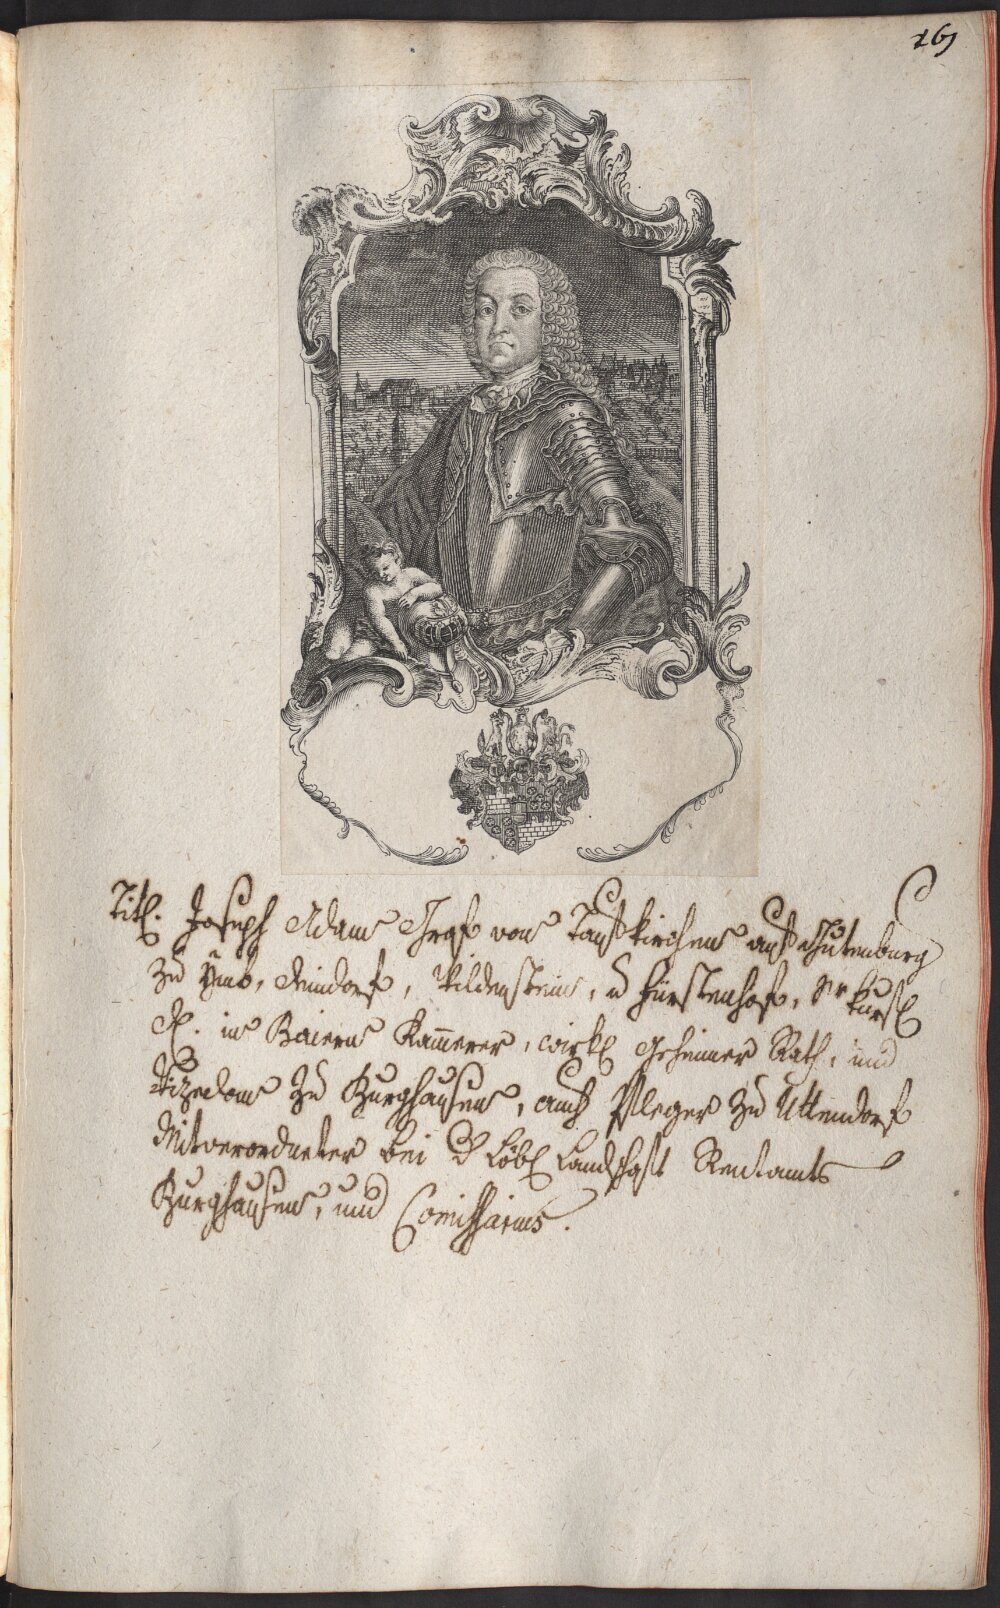 261
Titl. Joseph Adam Graf von Taufkirchen auf Gutenburg
zu Ymb, Kleindorf, Wildenstein, u Fürstenhof, Sr kurf
d. in Baiern Kammerer, wirkl geheimer Rath, und
Vizedom zu Burghausen, auch Pfleger zu Uttendorf
Mitverordneter bei d Löbl Landschaft Rentamts
Burghausen, und Comissarius.